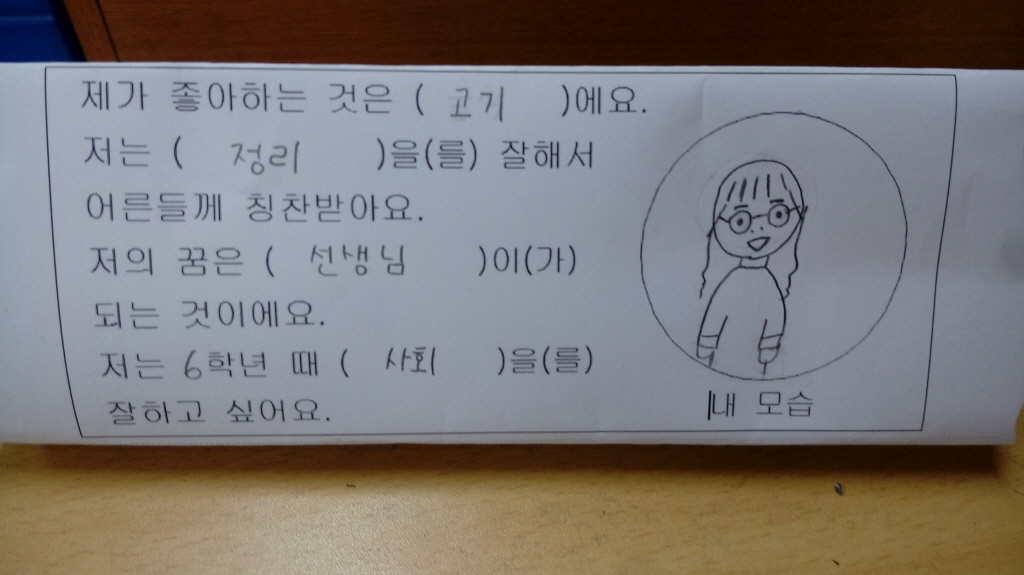 제가 좋아하는 것은 ( 고기 )에요.
저는 ( 정리 )을(를) 잘해서
어른들께 칭찬받아요.
저의 꿈은 ( 선생님 )이(가)
되는 것이에요.
저는 6학년 때 ( 사회 )을(를)
잘하고 싶어요.
내 모습